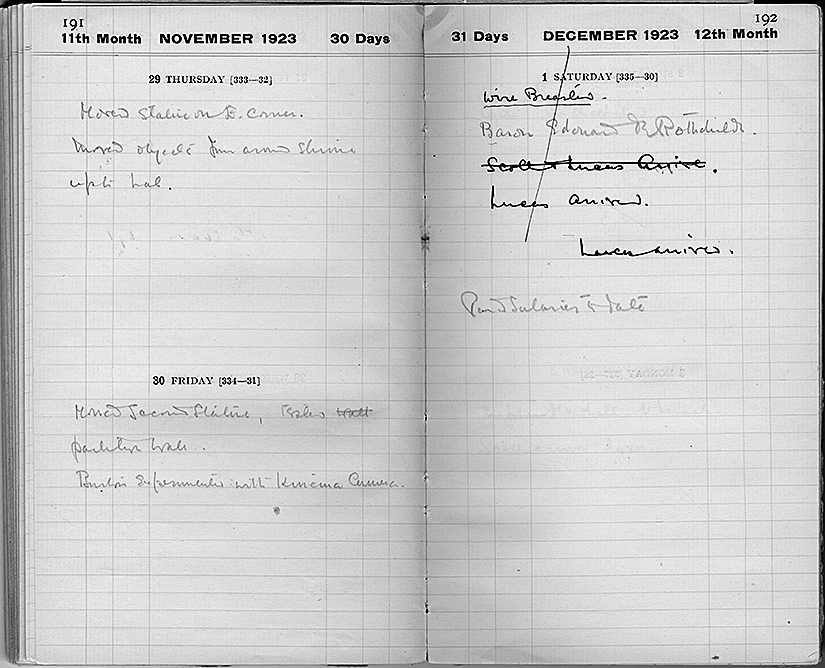 191
11th Month NOVEMBER 1923 30 Days
29 THURSDAY [333—32]
Moved Statue on E. Corner.
Moved objects from around Shrine
up to Lab.
30 FRIDAY [334—31]
Moved Second Statue, wall
partition wall.
Burton Experimented with Kinema Camera.
192
31 Days DECEMBER 1923 12th Month
1 SATURDAY [335—30]
Wire Breasted.
Baron Edouard R. Rothschild.
Scott & Lucas Arrive.
Lucas arrived.
Lucas arrived.
Paid Salaries to date